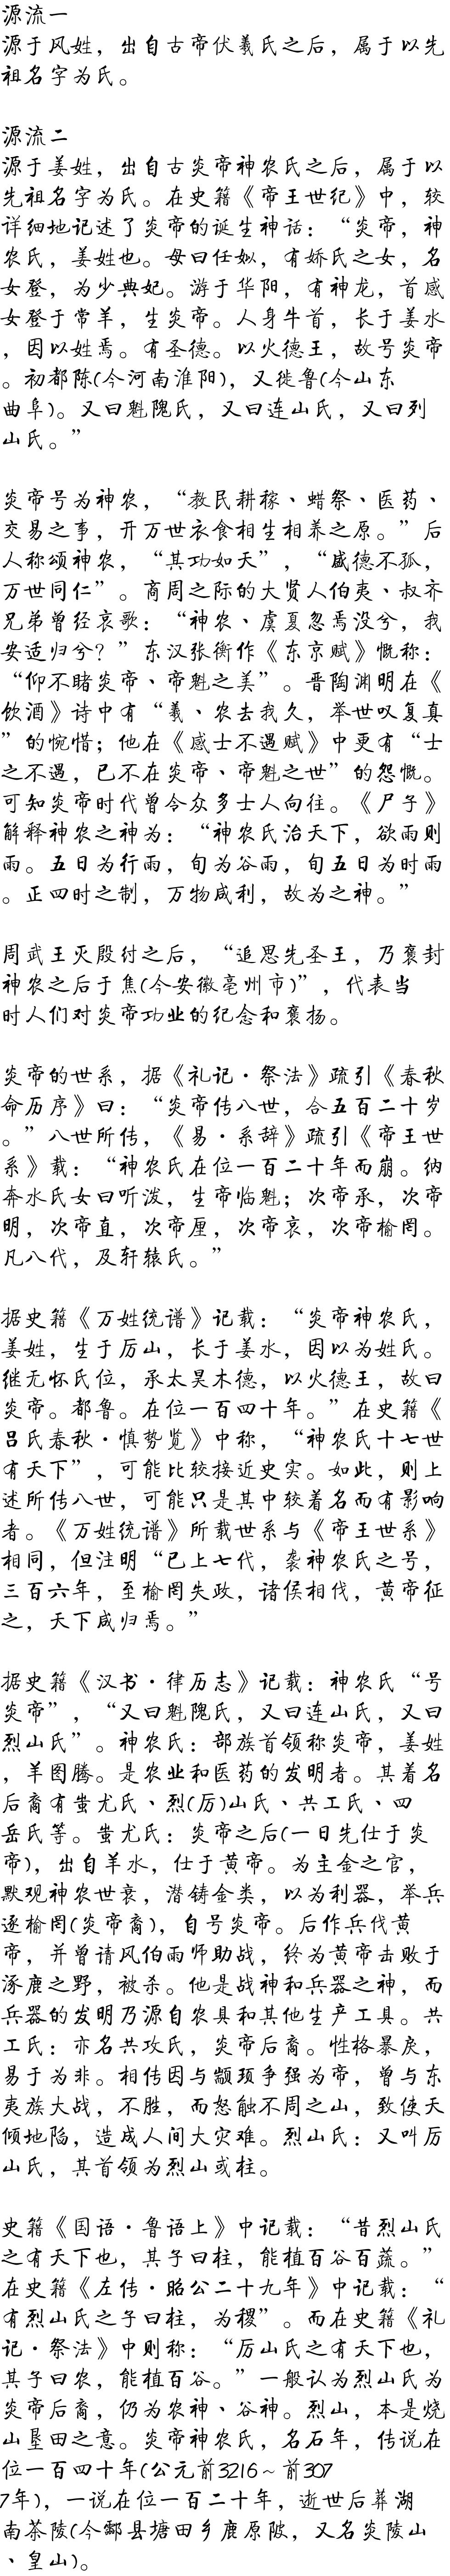 源流一
源于风姓，出自古帝伏羲氏之后，属于以先
祖名字为氏。
源流二
源于姜姓，出自古炎帝神农氏之后，属于以
先祖名字为氏。在史籍《帝王世纪》中，较
详细地记述了炎帝的诞生神话：“炎帝，神
农氏，姜姓也。母曰任姒，有娇氏之女，名
女登，为少典妃。游于华阳，有神龙，首感
女登于常羊，生炎帝。人身牛首，长于姜水
，因以姓焉。有圣德。以火德王，故号炎帝
。初都陈(今河南淮阳)，又徙鲁(今山东
曲阜)。又曰魁隗氏，又曰连山氏，又曰列
山氏。”
炎帝号为神农，“教民耕稼、蜡祭、医药、
交易之事，开万世衣食相生相养之原。”后
人称颂神农，“其功如天”，“盛德不孤，
万世同仁”。商周之际的大贤人伯夷、叔齐
兄弟曾经哀歌：“神农、虞夏忽焉没兮，我
安适归兮？”东汉张衡作《东京赋》慨称：
“仰不睹炎帝、帝魁之美”。晋陶渊明在《
饮酒》诗中有“羲、农去我久，举世叹复真
”的惋惜；他在《感士不遇赋》中更有“士
之不遇，已不在炎帝、帝魁之世”的怨慨。
可知炎帝时代曾令众多士人向往。《尸子》
解释神农之神为：“神农氏治天下，欲雨则
雨。五日为行雨，旬为谷雨，旬五日为时雨
。正四时之制，万物咸利，故为之神。”
周武王灭殷纣之后，“追思先圣王，乃褒封
神农之后于焦(今安徽亳州市)”，代表当
时人们对炎帝功业的纪念和褒扬。
炎帝的世系，据《礼记·祭法》疏引《春秋
命历序》曰：“炎帝传八世，合五百二十岁
。”八世所传，《易·系辞》疏引《帝王世
系》载：“神农氏在位一百二十年而崩。纳
奔水氏女曰听泼，生帝临魁；次帝承，次帝
明，次帝直，次帝厘，次帝哀，次帝榆罔。
凡八代，及轩辕氏。”
据史籍《万姓统谱》记载：“炎帝神农氏，
姜姓，生于厉山，长于姜水，因以为姓氏。
继无怀氏位，承太昊木德，以火德王，故曰
炎帝。都鲁。在位一百四十年。”在史籍《
吕氏春秋·慎势览》中称，“神农氏十七世
有天下”，可能比较接近史实。如此，则上
述所传八世，可能只是其中较着名而有影响
者。《万姓统谱》所载世系与《帝王世系》
相同，但注明“已上七代，袭神农氏之号，
三百六年，至榆罔失政，诸侯相伐，黄帝征
之，天下咸归焉。”
据史籍《汉书·律历志》记载：神农氏“号
炎帝”，“又曰魁隗氏，又曰连山氏，又曰
烈山氏”。神农氏：部族首领称炎帝，姜姓
，羊图腾。是农业和医药的发明者。其着名
后裔有蚩尤氏、烈(厉)山氏、共工氏、四
岳氏等。蚩尤氏：炎帝之后(一日先仕于炎
帝)，出自羊水，仕于黄帝。为主金之官，
默观神农世衰，潜铸金类，以为利器，举兵
逐榆罔(炎帝裔)，自号炎帝。后作兵伐黄
帝，并曾请风伯雨师助战，终为黄帝击败于
涿鹿之野，被杀。他是战神和兵器之神，而
兵器的发明乃源自农具和其他生产工具。共
工氏：亦名共攻氏，炎帝后裔。性格暴戾，
易于为非。相传因与颛顼争强为帝，曾与东
夷族大战，不胜，而怒触不周之山，致使天
倾地陷，造成人间大灾难。烈山氏：又叫厉
山氏，其首领为烈山或柱。
史籍《国语·鲁语上》中记载：“昔烈山氏
之有天下也，其子曰柱，能植百谷百蔬。”
在史籍《左传·昭公二十九年》中记载：“
有烈山氏之子曰柱，为稷”。而在史籍《礼
记·祭法》中则称：“厉山氏之有天下也，
其子曰农，能植百谷。”一般认为烈山氏为
炎帝后裔，仍为农神、谷神。烈山，本是烧
山垦田之意。炎帝神农氏，名石年，传说在
位一百四十年(公元前3216～前307
7年)，一说在位一百二十年，逝世后葬湖
南茶陵(今酃县塘田乡鹿原陂，又名炎陵山
、皇山)。